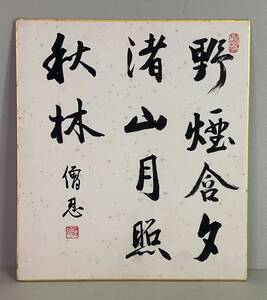 野煙含夕
渚山月照
秋林
僧忍